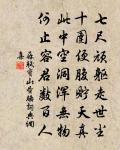 七尺頑軀走世塵
十圍便腹貯天真
此中空洞渾無物
何止容君數百人
蘇軾寶山晝睡
集